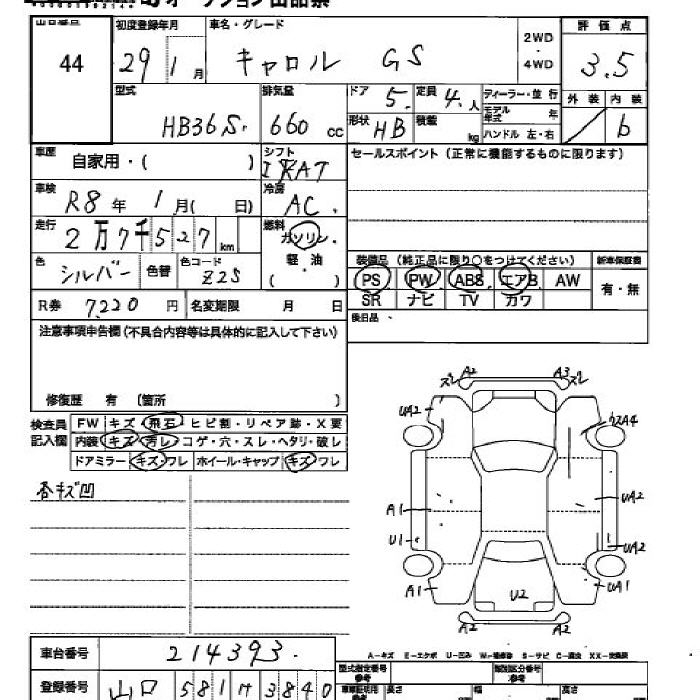 オークション出品票
出品番号 初度登録年月 車名・グレード 2WD・4WD 評価点
44 29 1月 キャロル GS 3.5
型式 HB36S. 排気量 660 cc ドア 5. 定員 4.人 ディーラー・並行 外装 内装
形状 HB 積載 kg モデル年式 年 b
ハンドル 左・右
車歴 自家用・( ) シフト セールスポイント(正常に機能するものに限ります)
車検 R8年 1月( 日) 冷房 AC.
走行 2万7千527km 燃料 ガソリン・軽油・( )
色 シルバー 色替 色コード Z2S 装備品(純正品に限り○をつけてください) 新車保証書
PS PW ABS エアB AW 有・無
R券 7220円 名変期限 月 日 SR ナビ TV カワ
後日品
注意事項申告欄(不具合内容等は具体的に記入して下さい)
修復歴 有 (箇所 )
検査員記入欄 FW キズ・飛石・ヒビ割・リペア跡・X要
内装 キズ・汚レ・コゲ・穴・スレ・ヘタリ・破レ
ドアミラー キズ・ワレ ホイール・キャップ キズ・ワレ
各キズ凹
スレ A2 A3 スレ
UA2 A4
A1 UA2
U1 UA2
A1 U2 UA1
A2 A2
車台番号 214393.
A-キズ E-エクボ U-凹み W-補修跡 S-サビ C-腐食 XX-交換済
登録番号 山口 581 サ 3840
型式指定番号 参考 類別区分番号 参考
車車証明用 参考 長さ 幅 高さ